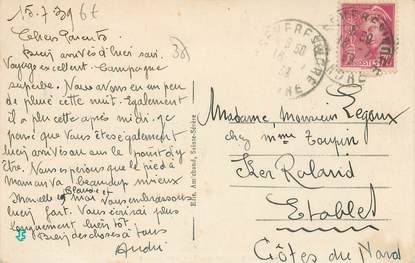 15.7.39
Chers Parents
Bien arrivés d'hier soir.
Voyage excellent. Campagne
superbe. Nous avons eu un peu
de pluie cette nuit. Egalement
il a plu cette après midi. Je
pense que Vous êtes également
arrivés ou sur le point d'y
être. Nous espérons que le pied à
maman va beaucoup mieux
Blanche
et moi Vous embrassons
bien fort. Vous écrirai plus
longuement bientôt.
Bien des choses à tous
André
38
Madame, Monsieur Legoux
chez Mme Toupin
Ker Roland
Etables
Côtes du Nord